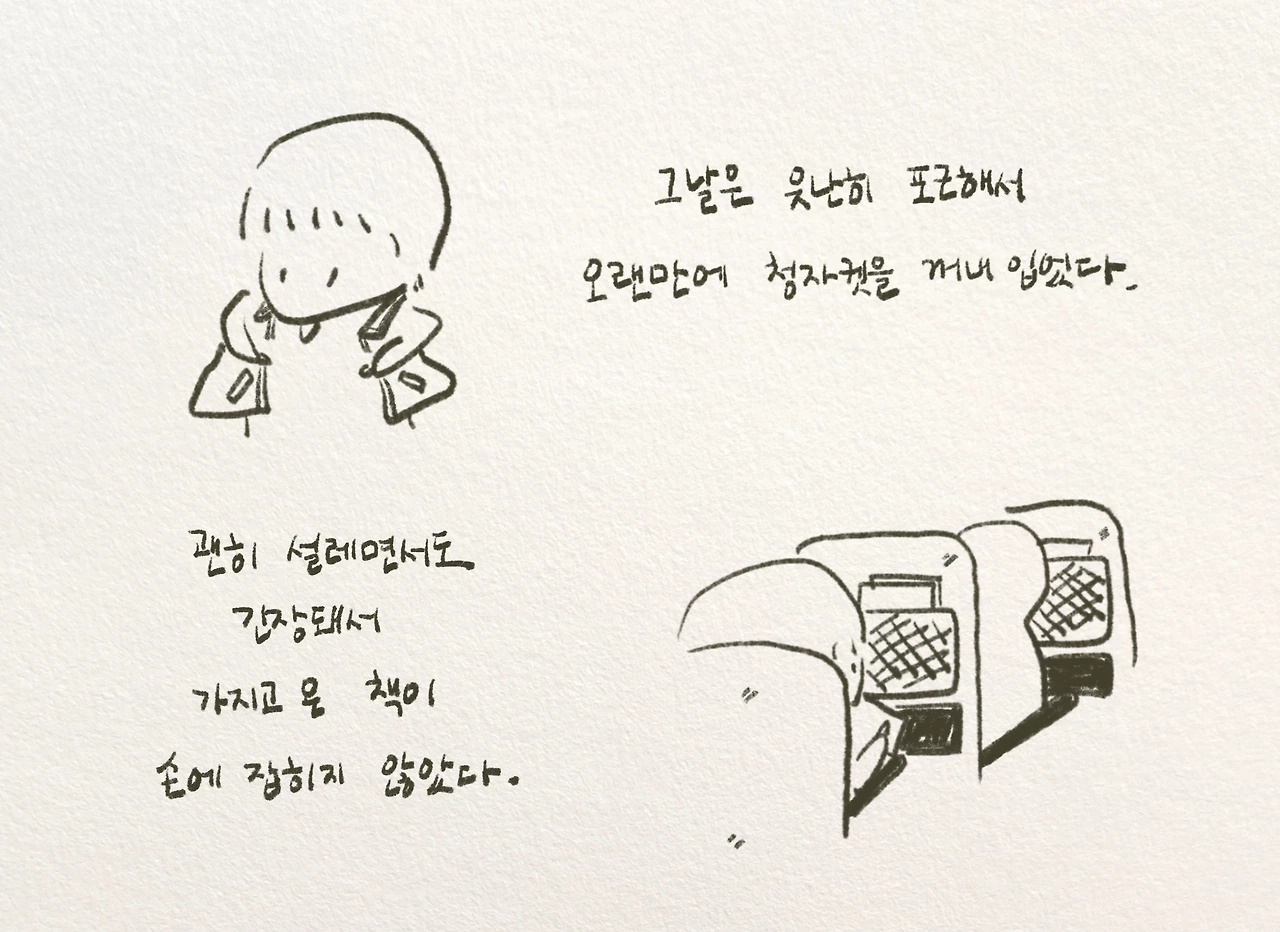 그날은 유난히 포근해서
오랜만에 청자켓을 꺼내 입었다.
괜히 설레면서도
긴장돼서
가지고 온 책이
손에 잡히지 않았다.